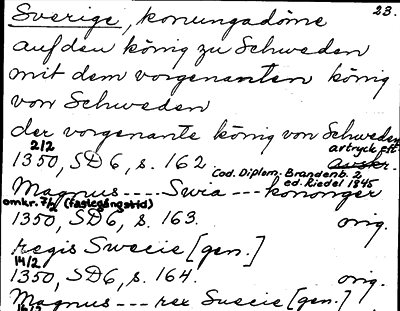 Sverige, konungadöme 23.
auf den könig zu Schweden
mit dem vorgenanten könig
von Schweden
der vorgenante könig von Schweden
2/2 avtryck eft
1350, SD6, s. 162. Avskr.
Cod. Diplom. Brandenb. 2
ed. Riedel 1845
Magnus ---- Swia --- kononger
omkr. 7/2 (fastegångstid)
1350, SD6, s. 163. orig.
regis Swecie [gen.]
14/2
1350, SD6, s. 164. orig.
Magnus --- rex Suecie [gen.]